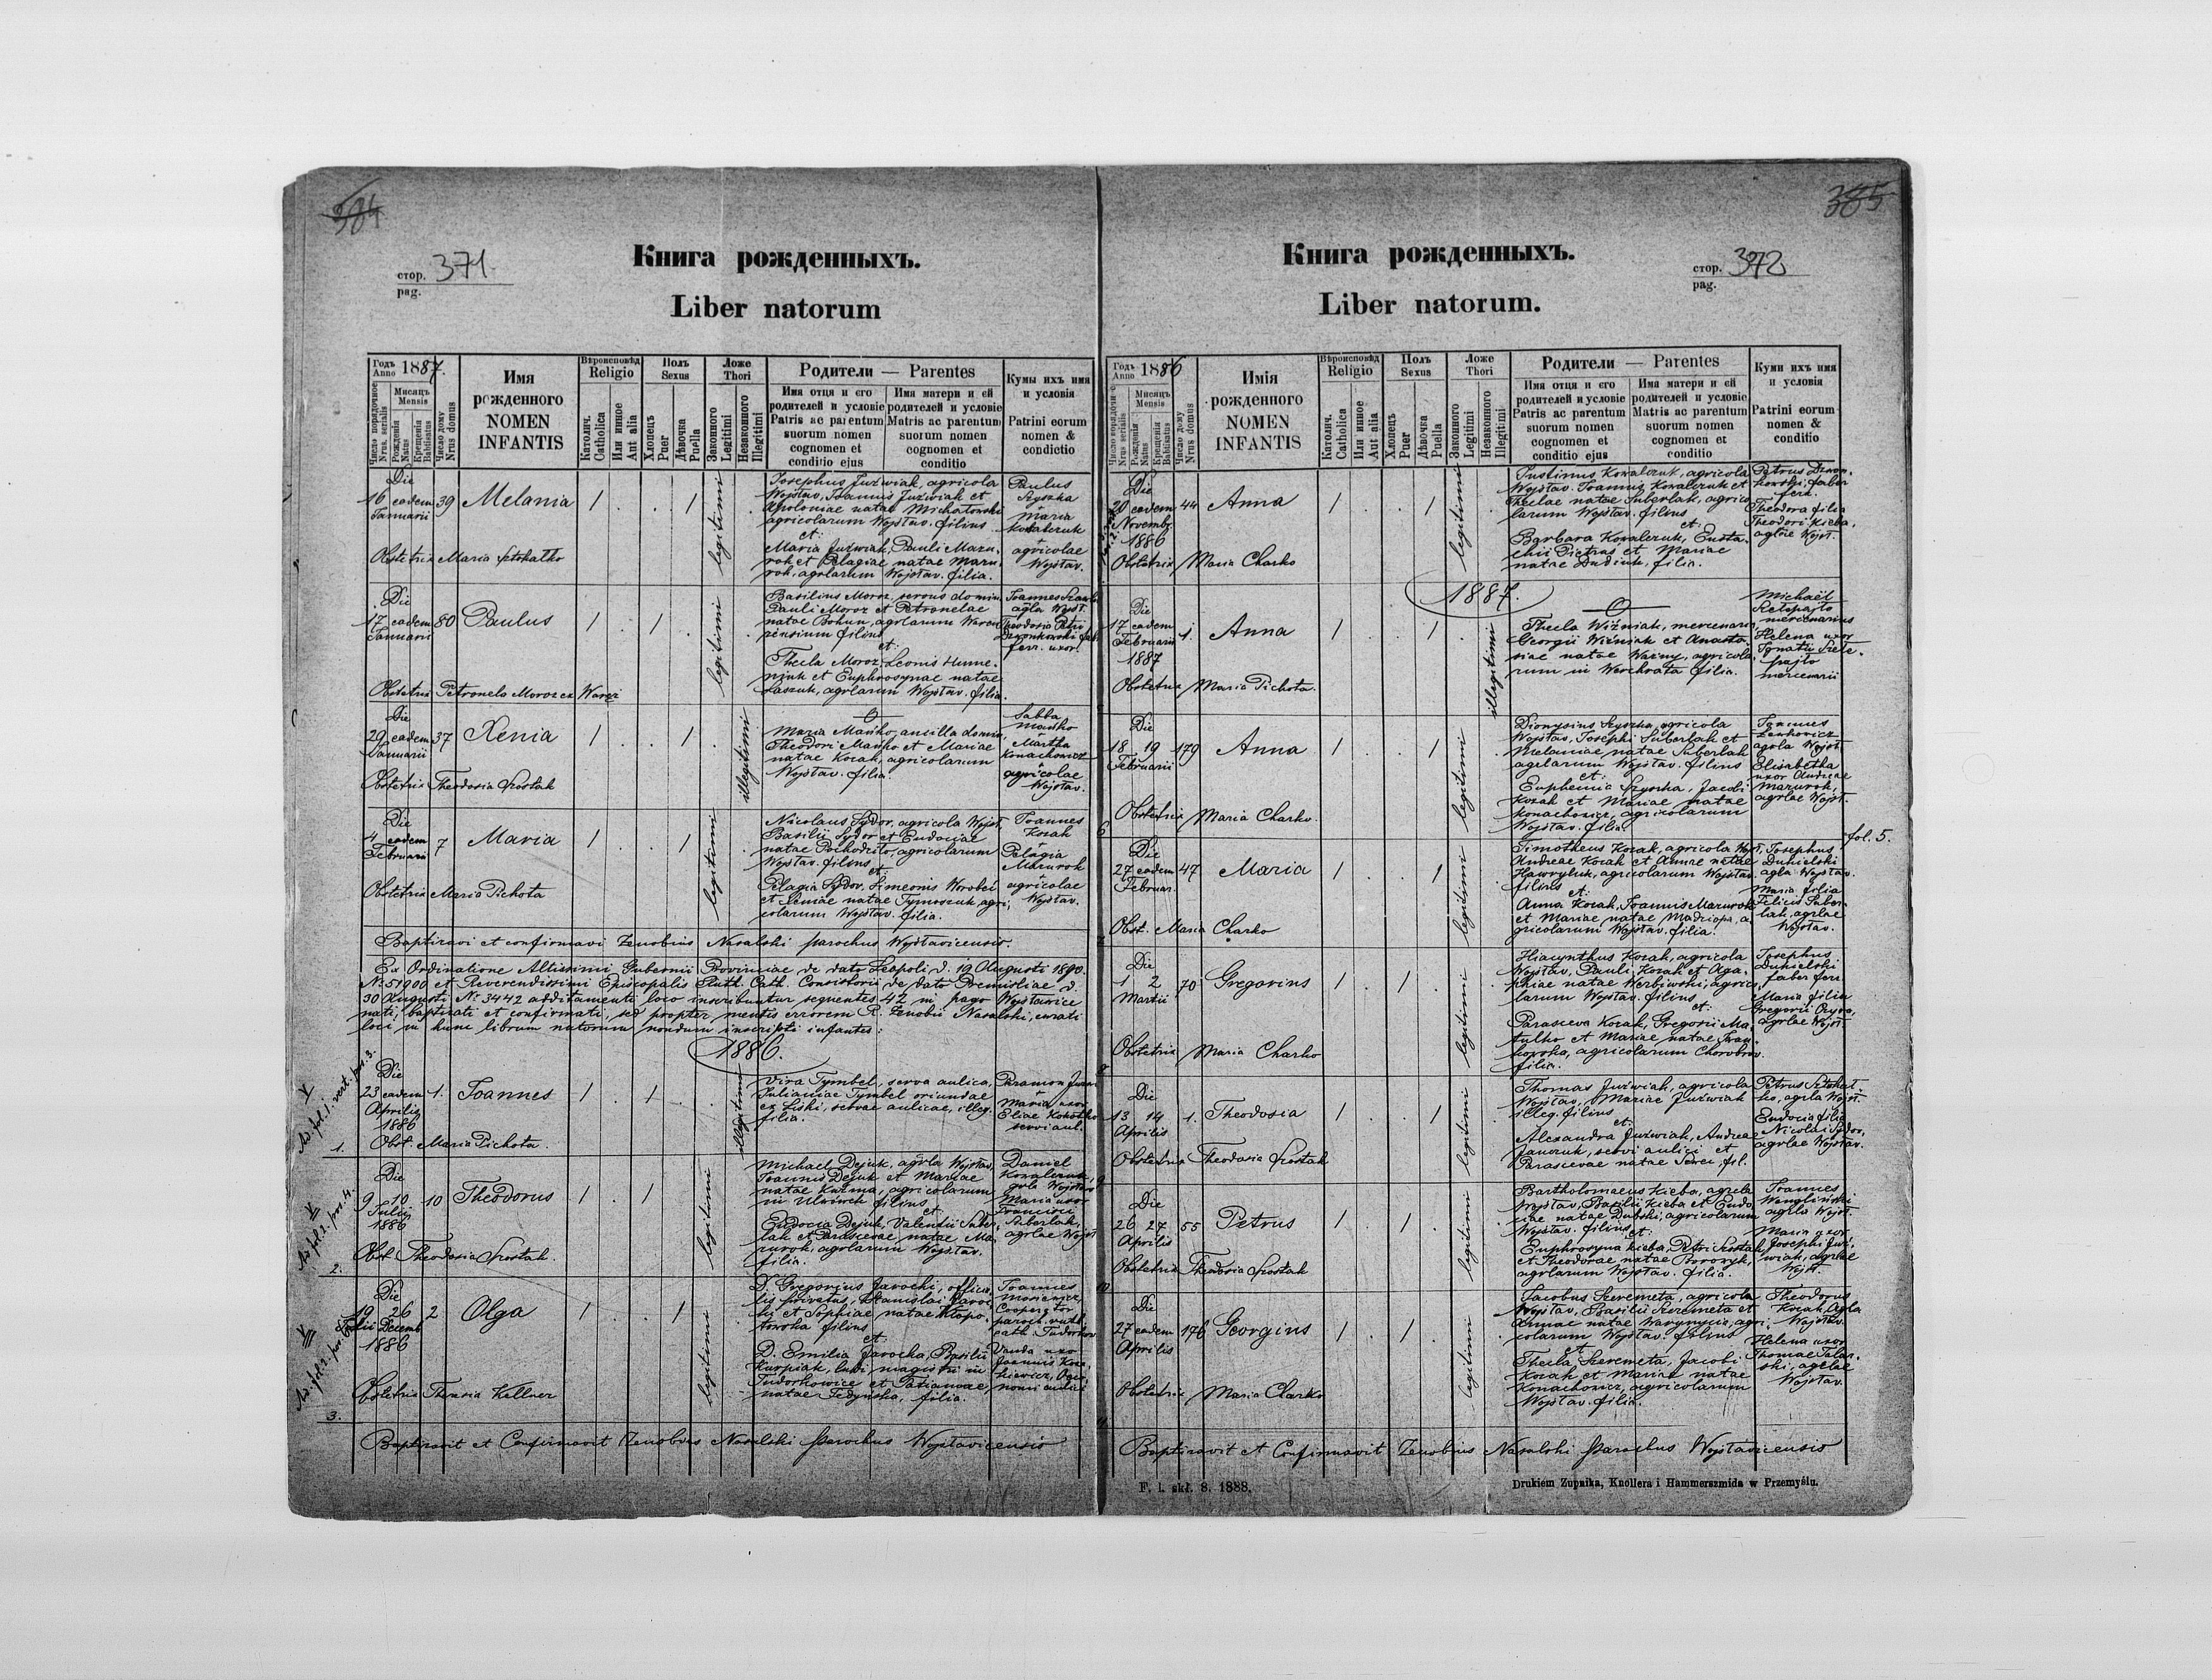 384
стор. 371.
pag.
Книга рожденныхъ.
Liber natorum
Годъ Anno 1887.
Число порядочное
Nrus. serialis
Мисяцъ
Mensis
Рожденія
Natus
Крещенія
Babtisatus
Число дому
Nrus domus
Имя
рожденного
NOMEN
INFANTIS
Вѣроисповѣд
Religio
Католич.
Catholica
Или инное
Aut alia
Полъ
Sexus
Хлопецъ
Puer
Дѣвочка
Puella
Ложе
Thori
Законного
Legitimi
Незаконного
Illegitimi
Родители — Parentes
Имя отця и его
родителей и условіе
Patris ac parentum
suorum nomen
cognomen et
conditio ejus
Имя матери и ей
родителей и условіе
Matris ac parentum
suorum nomen
cognomen et
conditio
Кумы ихъ имя
и условія
Patrini eorum
nomen &
condictio
Die
16 eadem 39 Melania 1 . . 1 legitimi
Januarii
Josephus Juźwiak, agricola
Wojsław. Joannis Juźwiak et
Apoloniae natae Michatowski
agricolarum Wojsław. filius
et:
Maria Juźwiak, Pauli Mazu-
rok et Pelagiae natae Mazu-
rok, agrlarum Wojsław. filia.
Paulus
Szyszka
Maria
Kowalczuk
agricolae
Wojsław.
Obstetrix Maria
Die
17 eadem 80 Paulus 1 . 1 . legitimi
Januarii
Basilius Moroz, servus domin.
Pauli Moroz et Petronelae
natae Bohun, agrlarum Waren
zensium filius
et:
Thecla Moroz, Leonis Hume-
niuk et Euphrosynae natae
Laszuk, agrlarum Wojsław. filia.
Joannes
agla Wojsł.
Theodosia Petri
Dzwonkowski fab.
ferr. uxor.
Obstetrix Petronela Moroz ex Warez
Die
29 eadem 37 Xenia 1 . . 1 . illegitimi
Januarii
O
Maria Mańko, ancilla domin.
Theodori Mańko et Mariae
natae Kozak, agricolarum
Wojsław. filia.
Sabba
Mańko
Martha
Konachowicz
agricolae
Wojsław.
Obstetrix Theodosia Szostak
Die
4 eadem 7 Maria 1 . . 1 legitimi
Februarii
Nicolaus Sydor, agricola Wojsł.
Basilii Sydor et Eudociae
natae, agricolarum
Wojsław. filius
et:
Pelagia Sydor, Simeonis Worobei
et Xeniae natae Tymoszuk, agri-
colarum Wojsław. filia.
Joannes
Kozak
Pelagia
Mazurok
agricolae
Wojsław.
Obstetrix Maria Pichota
Baptizavi et confirmavi Zenobius Nasalski parochus Wojsławicensis.
Ex Ordinatione Altissimi Gubernii Provinciae de dato Leopoli d. 19 Augusti 1890.
№ 51900 et Reverendissimi Episcopalis Ruth. Cath. Consistorii de dato Premisliae d.
30 Augusti № 3442 additamenti loco inscribuntur sequentes 42 in pago Wojsławice
nati, baptizati et confirmati, sed propter mentis errorem R. Zenobii Nasalski, curati
loci in hunc librum natorum nondum inscripti infantes:
1886.
Ad fol. 1. vert. pos. 3.
Die
23 eadem 1. Joannes 1 . 1 . . illegitimi
Aprilis
1886
Vira Tymbel, serva aulica,
Julianiae Tymbel oriundae
ex Liski, servae aulicae, illeg.
filia.
Paramon
Maria uxor
Eliae
servi aul.
Obst. Maria Pichota.
1.
Ad fol. 2. pos. 4.
Die
9 10 10 Theodorus 1 . 1 legitimi
Julii
1886
Michael Dejuk, agrla Wojsław.
Joannis Dejuk et Mariae
natae Kuźma, agricolarum
in filius
et
Eudocia Dejuk, Valentii Suber-
lak et Parascevae natae Ma-
zurok, agrlarum Wojsław.
filia.
Daniel
Kowalczuk,
agrla Wojsław.
Maria uxor
Francisci
Suberlak,
agrlae Wojsł
Obst. Theodosia Szostak.
2.
Ad fol. 2. pos. 8.
Die
19 26 2 Olga 1 . . 1 legitimi
Julii Decemb
1886
D. Gregorius Jarocki, officia-
lis privatus, Stanislai Jaroc-
ki et Sophiae natae Kłopo-
towska filius
et:
D. Emilia Jarocka, Basilii
Kurpiak, ludi magistri in
Tudorkowice et Tatianae,
natae Fedynska, filia.
Joannes
Cooperator
paroch. ruth.
cath. Tudorkow
Vanda uxor
Joannis
Obstetrix Theresia Kellner
3.
Baptizavit et Confirmavit Zenobius Nasalski Parochus Wojsławicensis
385
стор. 372
pag.
Книга рожденныхъ.
Liber natorum.
Годъ Anno 1886
Число порядочн о
Nrus serialis
Мисяцъ
Mensis
Рожденія
Natus
Крещенія
Babtisatus
Число дому
Nrus domus
Имія
рожденного
NOMEN
INFANTIS
Вѣроисповѣд
Religio
Католич.
Catholica
Или инное
Aut alia
Полъ
Sexus
Хлопецъ
Puer
Дѣвочка
Puella
Ложе
Thori
Законного
Legitimi
Незаконного
Illegitimi
Родители — Parentes
Имя отця и его
родителей и условіе
Patris ac parentum
suorum nomen
cognomen et
conditio ejus
Има матери и ей
родителей и условіе
Matris ac parentum
suorum nomen
cognomen et
conditio
Куми ихъ имя
и условія
Patrini eorum
nomen &
conditio
Die
20 eadem 44 Anna 1 . . 1 legitimi
Novembr.
1886
Justinus Kowalczuk, agricola
Wojsław. Joannis Kowalczuk et
Theclae natae Suberlak, agrico-
larum Wojsław. filius
et:
Barbara Kowalczuk, Eusta-
chii Pietras et Mariae
natae Dudiuk, filia.
Petrus Dzwon-
kowski, faber
ferr.
Theodora filia
Theodori Kieba,
aglae Wojsł.
Obstetrix Maria Charko
1887.
Die
17 eadem 1. Anna 1 . . 1 . illegitimi
Februarii
1887
O
Thecla Wiźniak, mercenaria,
Georgii Wiźniak et Anasta-
siae natae Ważny, agricola-
rum in Werchrata filia.
Michaël
Szelepajlo
mercenarius
Helena uxor
Ignatii Szele-
pajlo
mercenarii
Obstetrix Maria Pichota.
Die
18 19 179 Anna 1 . . 1 legitimi
Februarii
Dionysius Szyszka, agricola
Wojsław. Josephi Suberlak et
Melaniae natae Suberlak
agrlarum Wojsław. filius
et:
Euphemia Szyszka, Jacobi
Kozak et Mariae natae
Konachowicz, agricolarum
Wojsław. filia
Joannes
Zenkowicz
agrla Wojsł
Elisabetha
uxor Andreae
Mazurok,
agrlae Wojsł.
Obstetrix Maria Charko.
6
fol. 5.
Die
27 eadem 47 Maria 1 . . 1 legitimi
Februar.
Timotheus Kozak, agricola Wojsł.
Andreae Kozak et Annae natae
Hawryluk, agricolarum Wojsław.
filius
et:
Anna Kozak, Joannis Mazurok
et Mariae natae, a-
gricolarum Wojsław. filia.
Josephus
Dukielski
agla Wojsław.
Maria filia
Felicis Suber-
lak, agrlae
Wojsław.
Obst. Maria Charko
7
Die
1 2 70 Gregorius 1 . 1 . legitimi
Martii
Hiacynthus Kozak, agricola
Wojsław. Pauli Kozak et Aga-
phiae natae Werbiwski, agrico-
larum Wojsław. filius
et:
Parasceva Kozak, Gregorii Ma-
tulko et Mariae natae
, agricolarum Chorobrow.
filia.
Josephus
Dukielski
faber ferr.
Maria filia
Gregorii
agrlae Wojsł.
Obstetrix Maria Charko
8
Die
13 14 1. Theodosia 1 . . 1 legitimi
Aprilis
Thomas Juźwiak, agricola
Wojsław. Mariae Juźwiak
illeg. filius
et:
Alexandra Juźwiak, Andreae
Jaworuk, servi aulici et
Parascevae natae, fil.
Petrus
agrla Wojsł.
Eudocia filia
Nicolai Sydor,
agrlae Wojsław.
Obstetrix Theodosia Szostak
9
Die
26 27 55 Petrus 1 . 1 . legitimi
Aprilis
Bartholomaeus Kieba, agrcla
Wojsław, Basilii Kieba et Eudo-
ciae natae Dubski, agricolarum
Wojsław. filius
et:
Euphrosyna Kieba, Petri Szostak
et Theodorae natae Borowyk,
agrlarum Wojsław. filia.
Joannes
agrla Wojsł.
Maria uxor
Josephi Juź-
wiak, agrlae
Wojsł.
Obstetrix Theodosia Szostak
10
Die
27 eadem 176 Georgius 1 . 1 . legitimi
Aprilis
Jacobus Szeremeta, agricola
Wojsław, Basilii Szeremeta et
Annae natae, agri-
colarum Wojsław. filius
et
Thecla Szeremeta, Jacobi
Kozak et Mariae natae
Konachowicz, agricolarum
Wojsław. filia.
Theodorus
Kozak, agrla
Wojsław.
Helena uxor
Thomae Talar-
ski, agrlae
Wojsław.
Obstetrix Maria Charko
11
Baptizavit et Confirmavit Zenobius Nasalski Parochus Wojsławicensis
F. l. skł. 8. 1888.
Drukiem Żupnika, Knollera i Hammerszmida w Przemyślu.